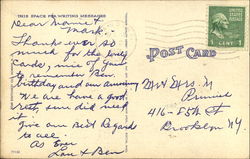 THIS SPACE FOR WRITING MESSAGES
Dear
Mark:
Thanks ever so
much for the lovely
cards, nice of you
to remember Ben
birthday and our anniversary
We are have a good
rest, sure did need
it
Give our Best Regards
to all.
As Ever
Lou & Ben
POST CARD
Mr & Mrs. M
416-85th St
Brooklyn NY
1 CENT 1